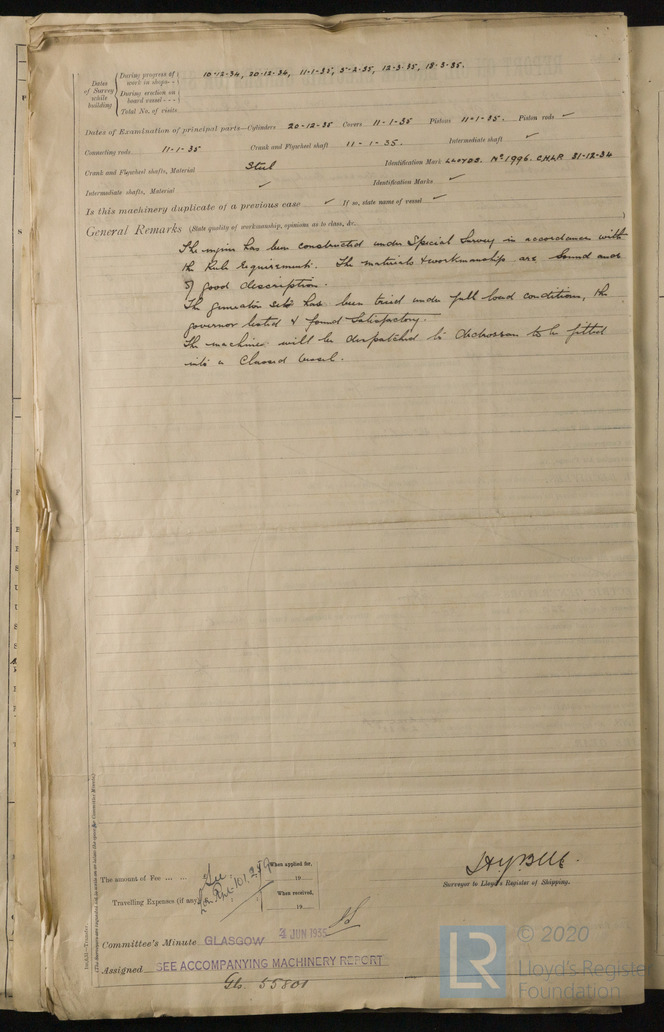 Dates of Survey while building
During progress of work in shops - - 10-12-34, 20-12-34, 11-1-35, 5-2-35, 12-3-35, 18-3-35.
During erection on board vessel - - -
Total No. of visits
Dates of Examination of principal parts—Cylinders 20-12-35 Covers 11-1-35 Pistons 11-1-35. Piston rods ✓
Connecting rods 11-1-35 Crank and Flywheel shaft 11-1-35. Intermediate shaft ✓
Crank and Flywheel shaft, Material Steel Identification Mark LLOYDS. No 1996. C.H.&R 31-12-34
Intermediate shafts, Material ✓ Identification Marks ✓
Is this machinery duplicate of a previous case ✓ If so, state name of vessel ✓
General Remarks (State quality of workmanship, opinions as to class, &c.
The engine has been constructed under Special Survey in accordance with
the Rule Requirements. The materials & workmanship are sound and
of good description.
The generator sets has been tried under full load conditions, the
governor tested & found satisfactory.
The machines will be despatched to Ardrossan to be fitted
into a Classed vessel.
The amount of Fee ... ... See
When applied for, 19
Travelling Expenses (if any)
Lon. Rpt. 101,289
When received, 19
Surveyor to Lloyd's Register of Shipping.
Committee's Minute GLASGOW 4 JUN 1935
Assigned SEE ACCOMPANYING MACHINERY REPORT
Gls. 55801
LR
© 2020
Lloyd's Register
Foundation